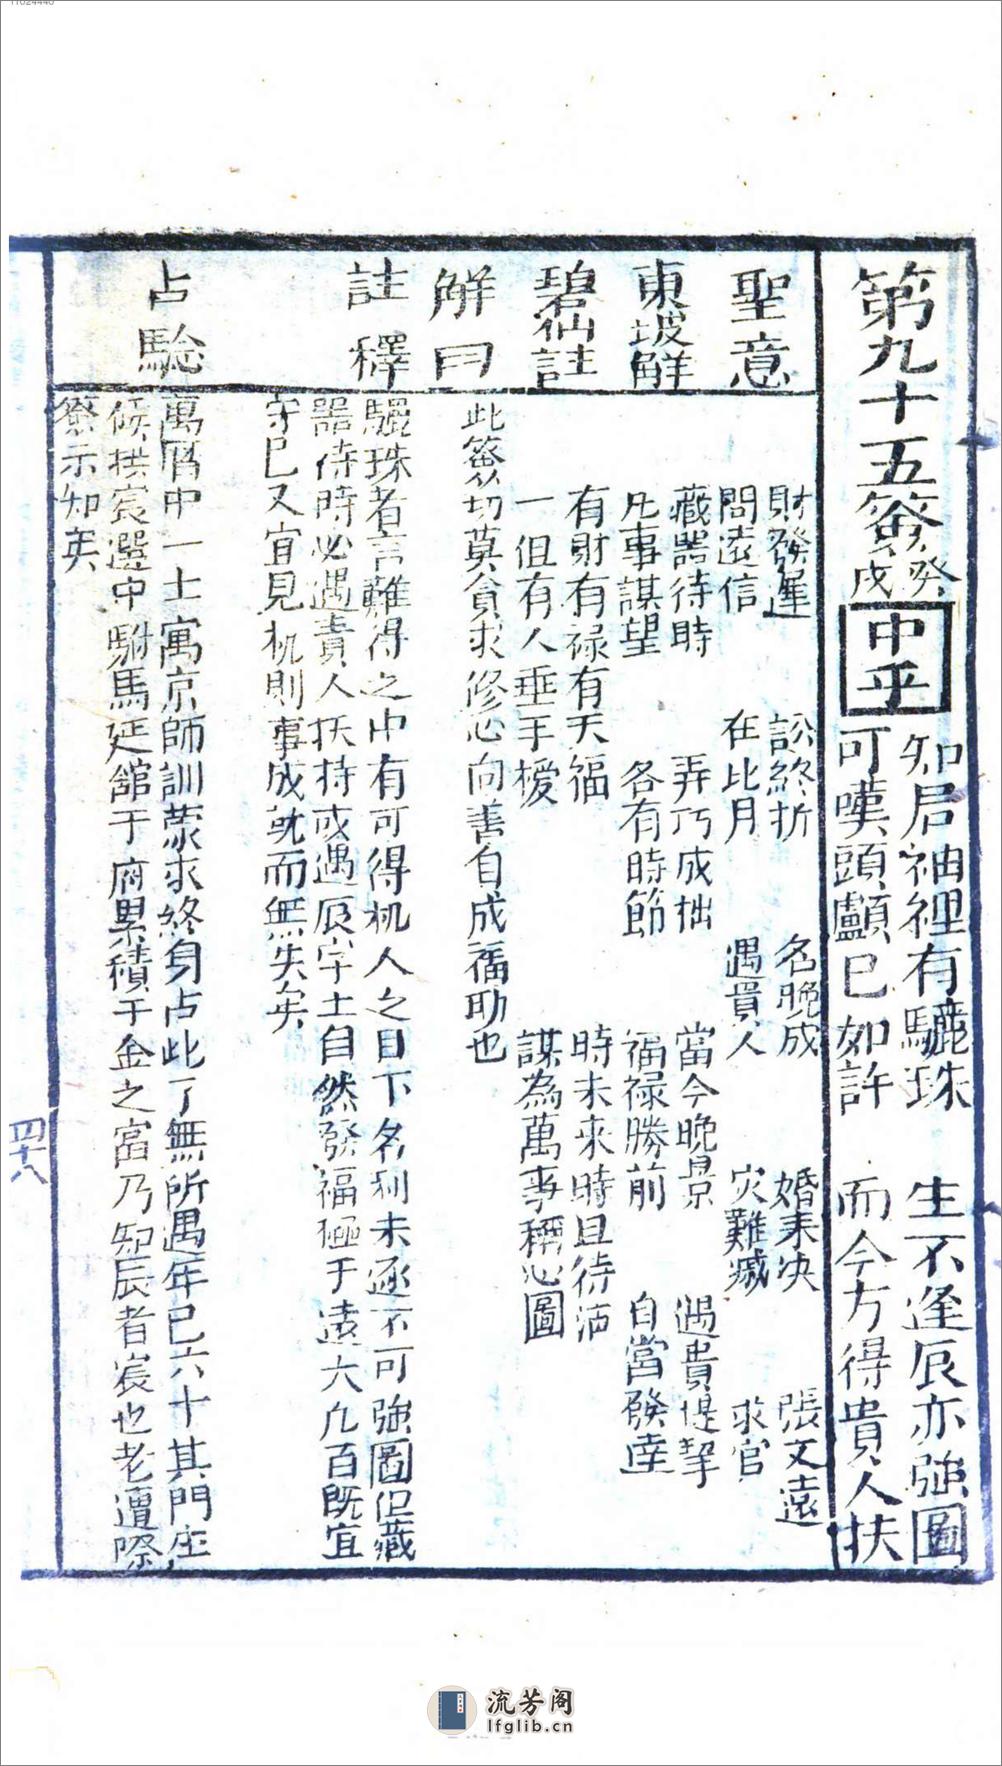 第九十五簽 癸戌 中平
知君袖裡有驪珠 生不逢辰亦強圖
可嘆頭顱已如許 而今方得貴人扶
聖意
財發遲 訟終折 名晚成 婚未决 張文遠
問遠信 在此月 遇貴人 灾難滅 求官
東坡解
藏器待時 弄巧成拙 當今晚景 遇貴提挈
凡事謀望 各有時節 福禄勝前 自當發達
碧仙註
有財有禄有天福 時未來時且待沽
一但有人垂手㮙 謀為萬事稱心圖
解曰
此簽切莫貪求修心向善自成福助也
註釋
驪珠者言難得之中有可得机人之目下名利未逐不可強圖但藏
器待時必遇責人扶持或遇辰字土自然發福極于遠大凢百既宜
守已又宜見机則事成就而無失矣
占驗
萬曆中一士寓京師訓蒙求終身占此了無所遇年已六十其門庄
候拱宸選中駙馬延舘于府累積千金之富乃知辰者宸也老遭際
簽示知矣
四十八
流芳阁
lfglib.cn